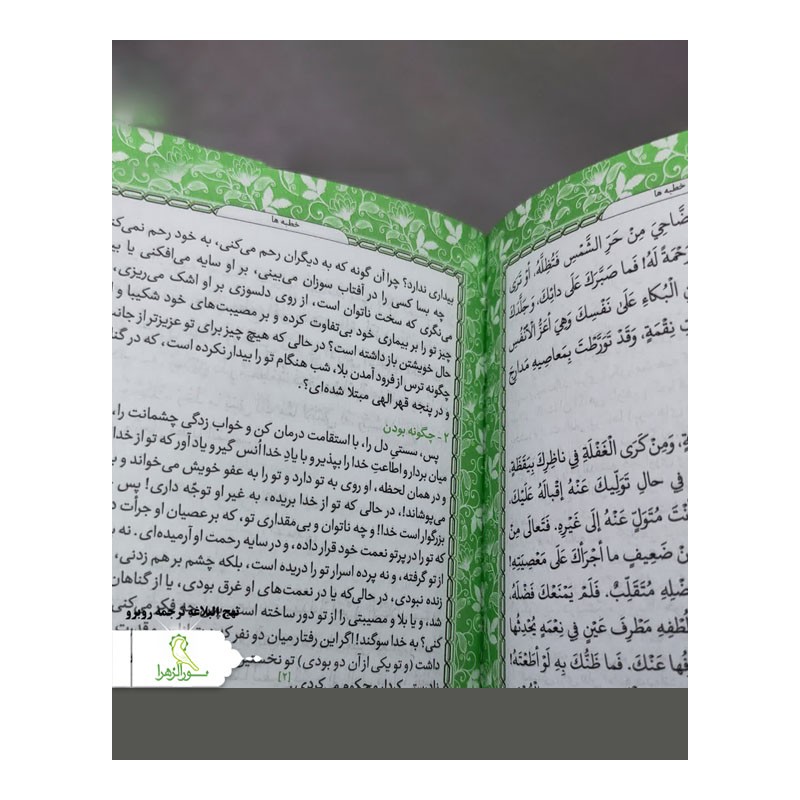 خطبه ها
ضَّاحِيَ مِنْ حَرِّ الشَّمْسِ فَتُظِلُّهُ، أَوْ تَرَى
رَحْمَةً لَهُ! فَما صَبَّرَكَ عَلَى دائِكَ، وَ جَلَّدَكَ
الْبُكاءِ عَلَىٰ نَفْسِكَ وَهِيَ أَعَزُّ الْأَنْفُسِ
نِقْمَةٍ، وَقَدْ تَوَرَّطْتَ بِمَعاصِيهِ مَدارِجَ
وَمِنْ كَرَى الْغَفْلَةِ فِي ناظِرِكَ بِيَقَظَةٍ،
فِي حالِ تَوَلِّيكَ عَنْهُ إِقْبالَهُ عَلَيْكَ،
مُتَوَلٍّ عَنْهُ إِلَىٰ غَيْرِهِ. فَتَعالَى مِنْ
مِنْ ضَعِيفٍ ما أَجْرَأَكَ عَلَى مَعْصِيَتِهِ!
مُتَقَلِّبٌ. فَلَمْ يَمْنَعْكَ فَضْلَهُ،
لُطْفِهِ مَطْرِفَ عَيْنٍ فِي نِعْمَةٍ يُحْدِثُها
عَنْكَ، فَما ظَنُّكَ بِهِ لَوْ أَطَعْتَهُ!
خطبه ها
بیداری ندارد؟ چرا آن گونه که به دیگران رحم می‌کنی، به خود رحم نمی‌کنی
چه بسا کسی را در آفتاب سوزان می‌بینی، بر او سایه می‌افکنی یا
می‌نگری که سخت ناتوان است، از روی دلسوزی بر او اشک می‌ریزی،
چیز تو را بر بیماری خود بی‌تفاوت کرده و بر مصیبت‌های خود شکیبا و
حال خویشتن باز داشته است؟ در حالی که هیچ چیز برای تو عزیزتر از
چگونه ترس از فرود آمدن بلا، شب هنگام تو را بیدار نکرده است، که در
و در پنجه قهر الهی مبتلا شده‌ای؟.
۲ - چگونه بودن
پس، سستیِ دل را، با استقامت درمان کن و خواب زدگی چشمانت را،
میان بردار و اطاعتِ خدا را بپذیر و با یادِ خدا اُنس گیر و یاد آور که تو از خدا
و در همان لحظه، او روی به تو دارد و تو را به عفو خویش می‌خواند و با
می‌پوشاند!، در حالی که تو از خدا بریده، به غیر او توجّه داری! پس
بزرگوار است خدا! و چه ناتوان و بی‌مقداری تو، که بر عصیان او جرأت
که تو را در پرتو نعمت خود قرار داده، و در سایه رحمت او آرمیده‌ای. نه
از تو گرفته، و نه پرده اسرار تو را دریده است، بلکه چشم بر هم زدنی،
زنده نبودی، در حالی‌که یا در نعمت‌های او غرق بودی، یا از گناهان
شد، و یا بلا و مصیبتی را از تو دور ساخته است، فکر می‌کنی
کنی؟ به خدا سوگند! اگر این رفتار میان دو نفر
داشت (و تو یکی از آن دو بودی) تو
کردار محکوم می‌کردی. [۲]
نهج البلاغه ترجمه روبرو
نورالزهرا